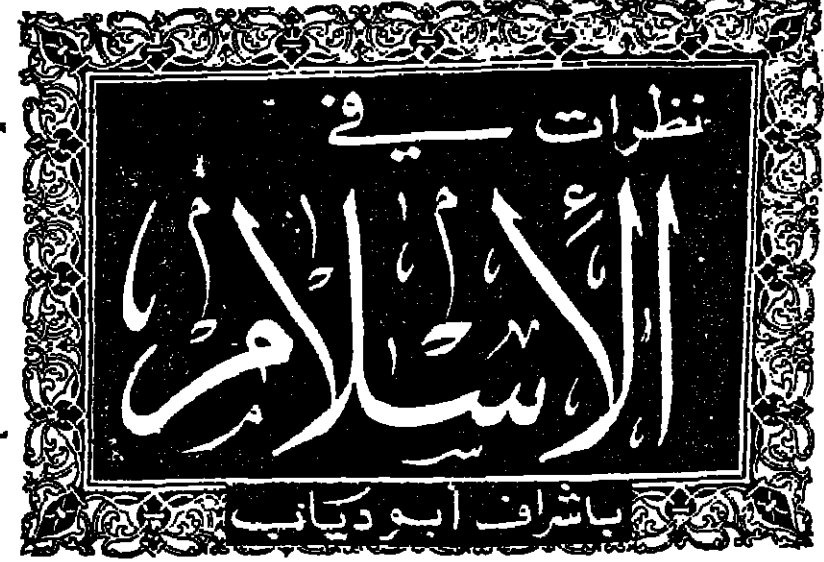 نظرات في
الإسلام
باشراف أبو ديانب